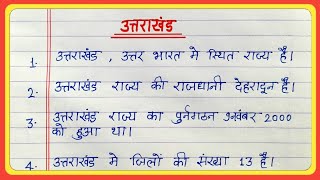 उत्तराखंड
1. उत्तराखंड , उत्तर भारत मे स्थित राज्य है।
2. उत्तराखंड राज्य की राजधानी देहरादून है।
3. उत्तराखंड राज्य का पुर्नगठन 9 नवंबर 2000
को हुआ था।
4. उत्तराखंड मे जिलों की संख्या 13 है।